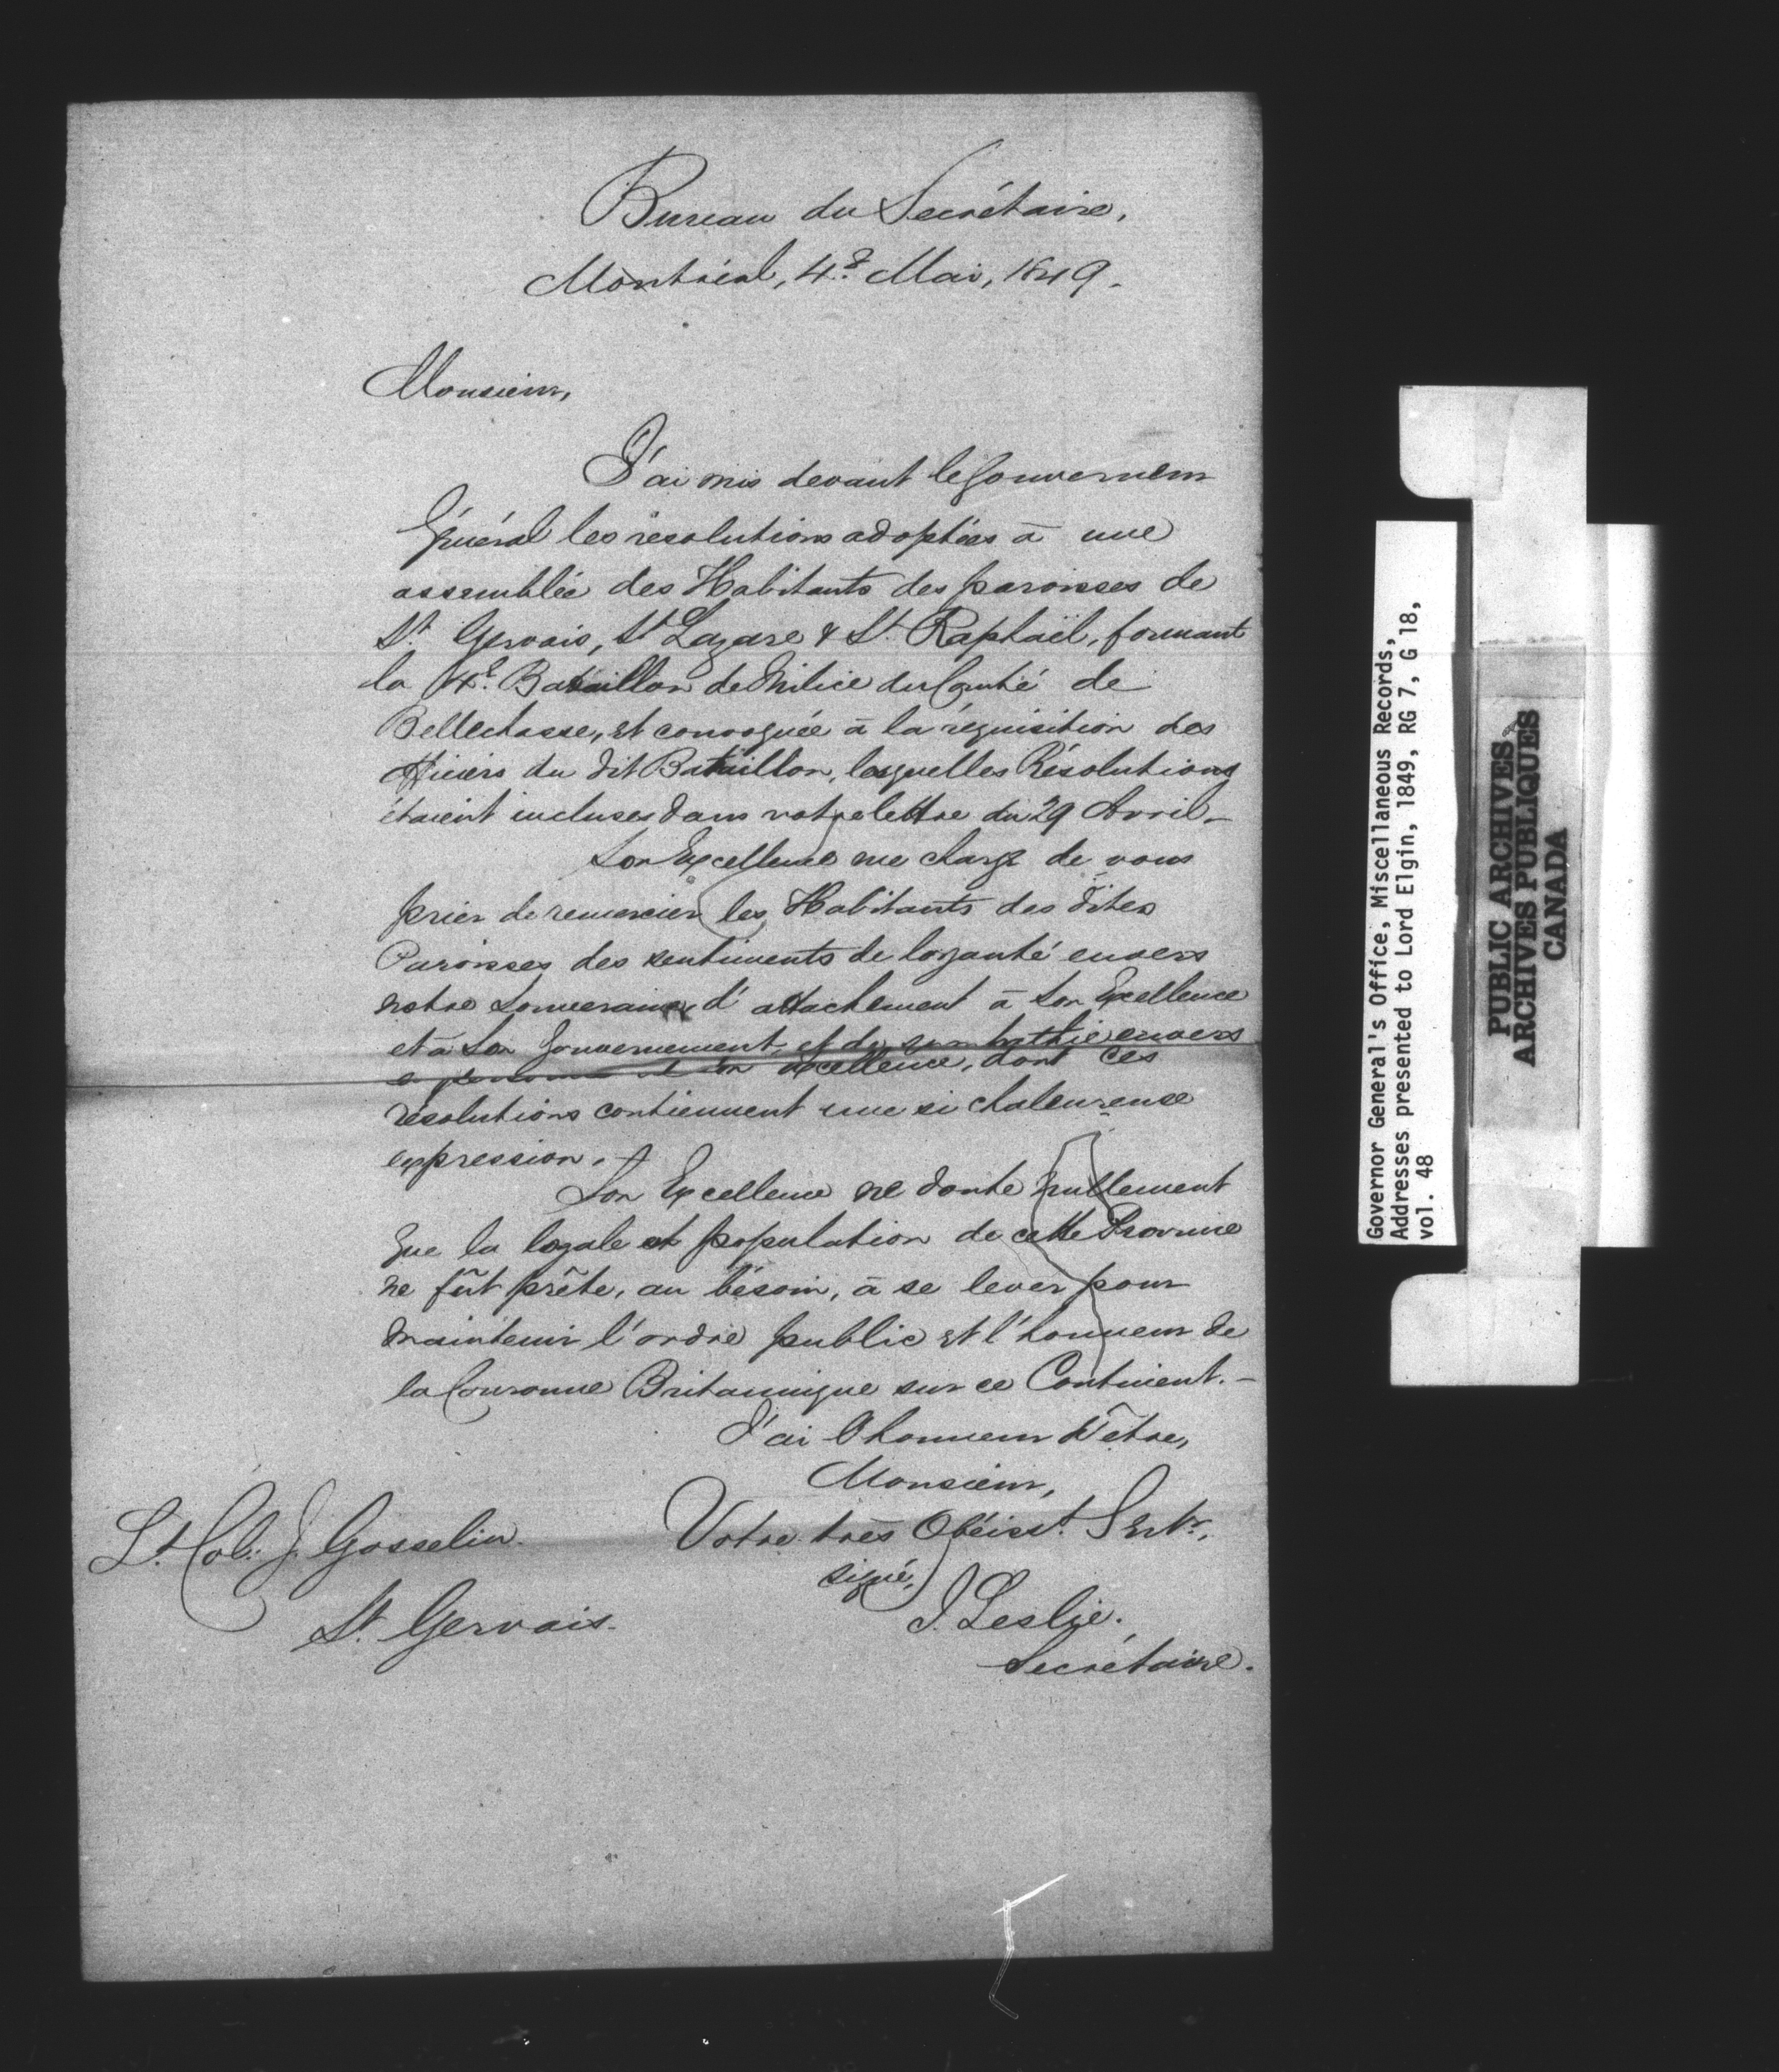 Bureau du Secrétaire,
Montréal, 4e Mai, 1849.
Monsieur,
J'ai mis devant le Gouverneur
Général les résolutions adoptées à une
assemblée des Habitants des paroisses de
St. Gervais, St Lazare & St. Raphaël, formant
la 4e. Bataillon de Milice du Comté de
Bellechasse, et convoquée à la réquisition des
officiers du dit Bataillon, lesquelles Résolutions
étaient incluses dans votre lettre du 29 Avril.-
Son Excellence me charge de vous
prier de remercier les Habitants des dites
Paroisses des sentiments de loyauté envers
notre Souveraine, d'attachement à Son Excellence
et à Son Gouvernement, et de sympathie envers
la personne de Son Excellence, dont ces
résolutions contiennent une si chaleureuse
expression.
Son Excellence ne doute nullement
que la loyale et population de cette Province
ne fût prête, au bésoin, à se lever pour
maintenir l'ordre public et l'honneur de
la Couronne Britannique sur ce Continent.-
J'ai l'honneur d'être,
Monsieur,
Votre très Obéisst. Servtr.,
signé,
J. Leslie.
Secrétaire.
Lt. Col. J. Gosselin.
St. Gervais.
Governor General's Office, Miscellaneous Records,
Addresses presented to Lord Elgin, 1849, RG 7, G 18,
vol. 48
PUBLIC ARCHIVES
ARCHIVES PUBLIQUES
CANADA